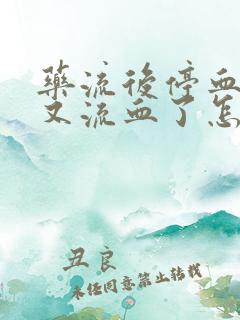 藥流後停血
又流血了怎
丑良
未经同意禁止转载